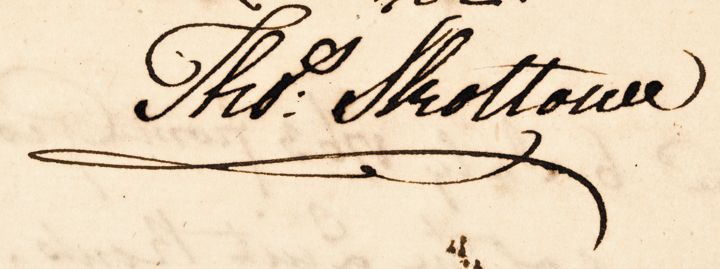 Tho.s Skottowe